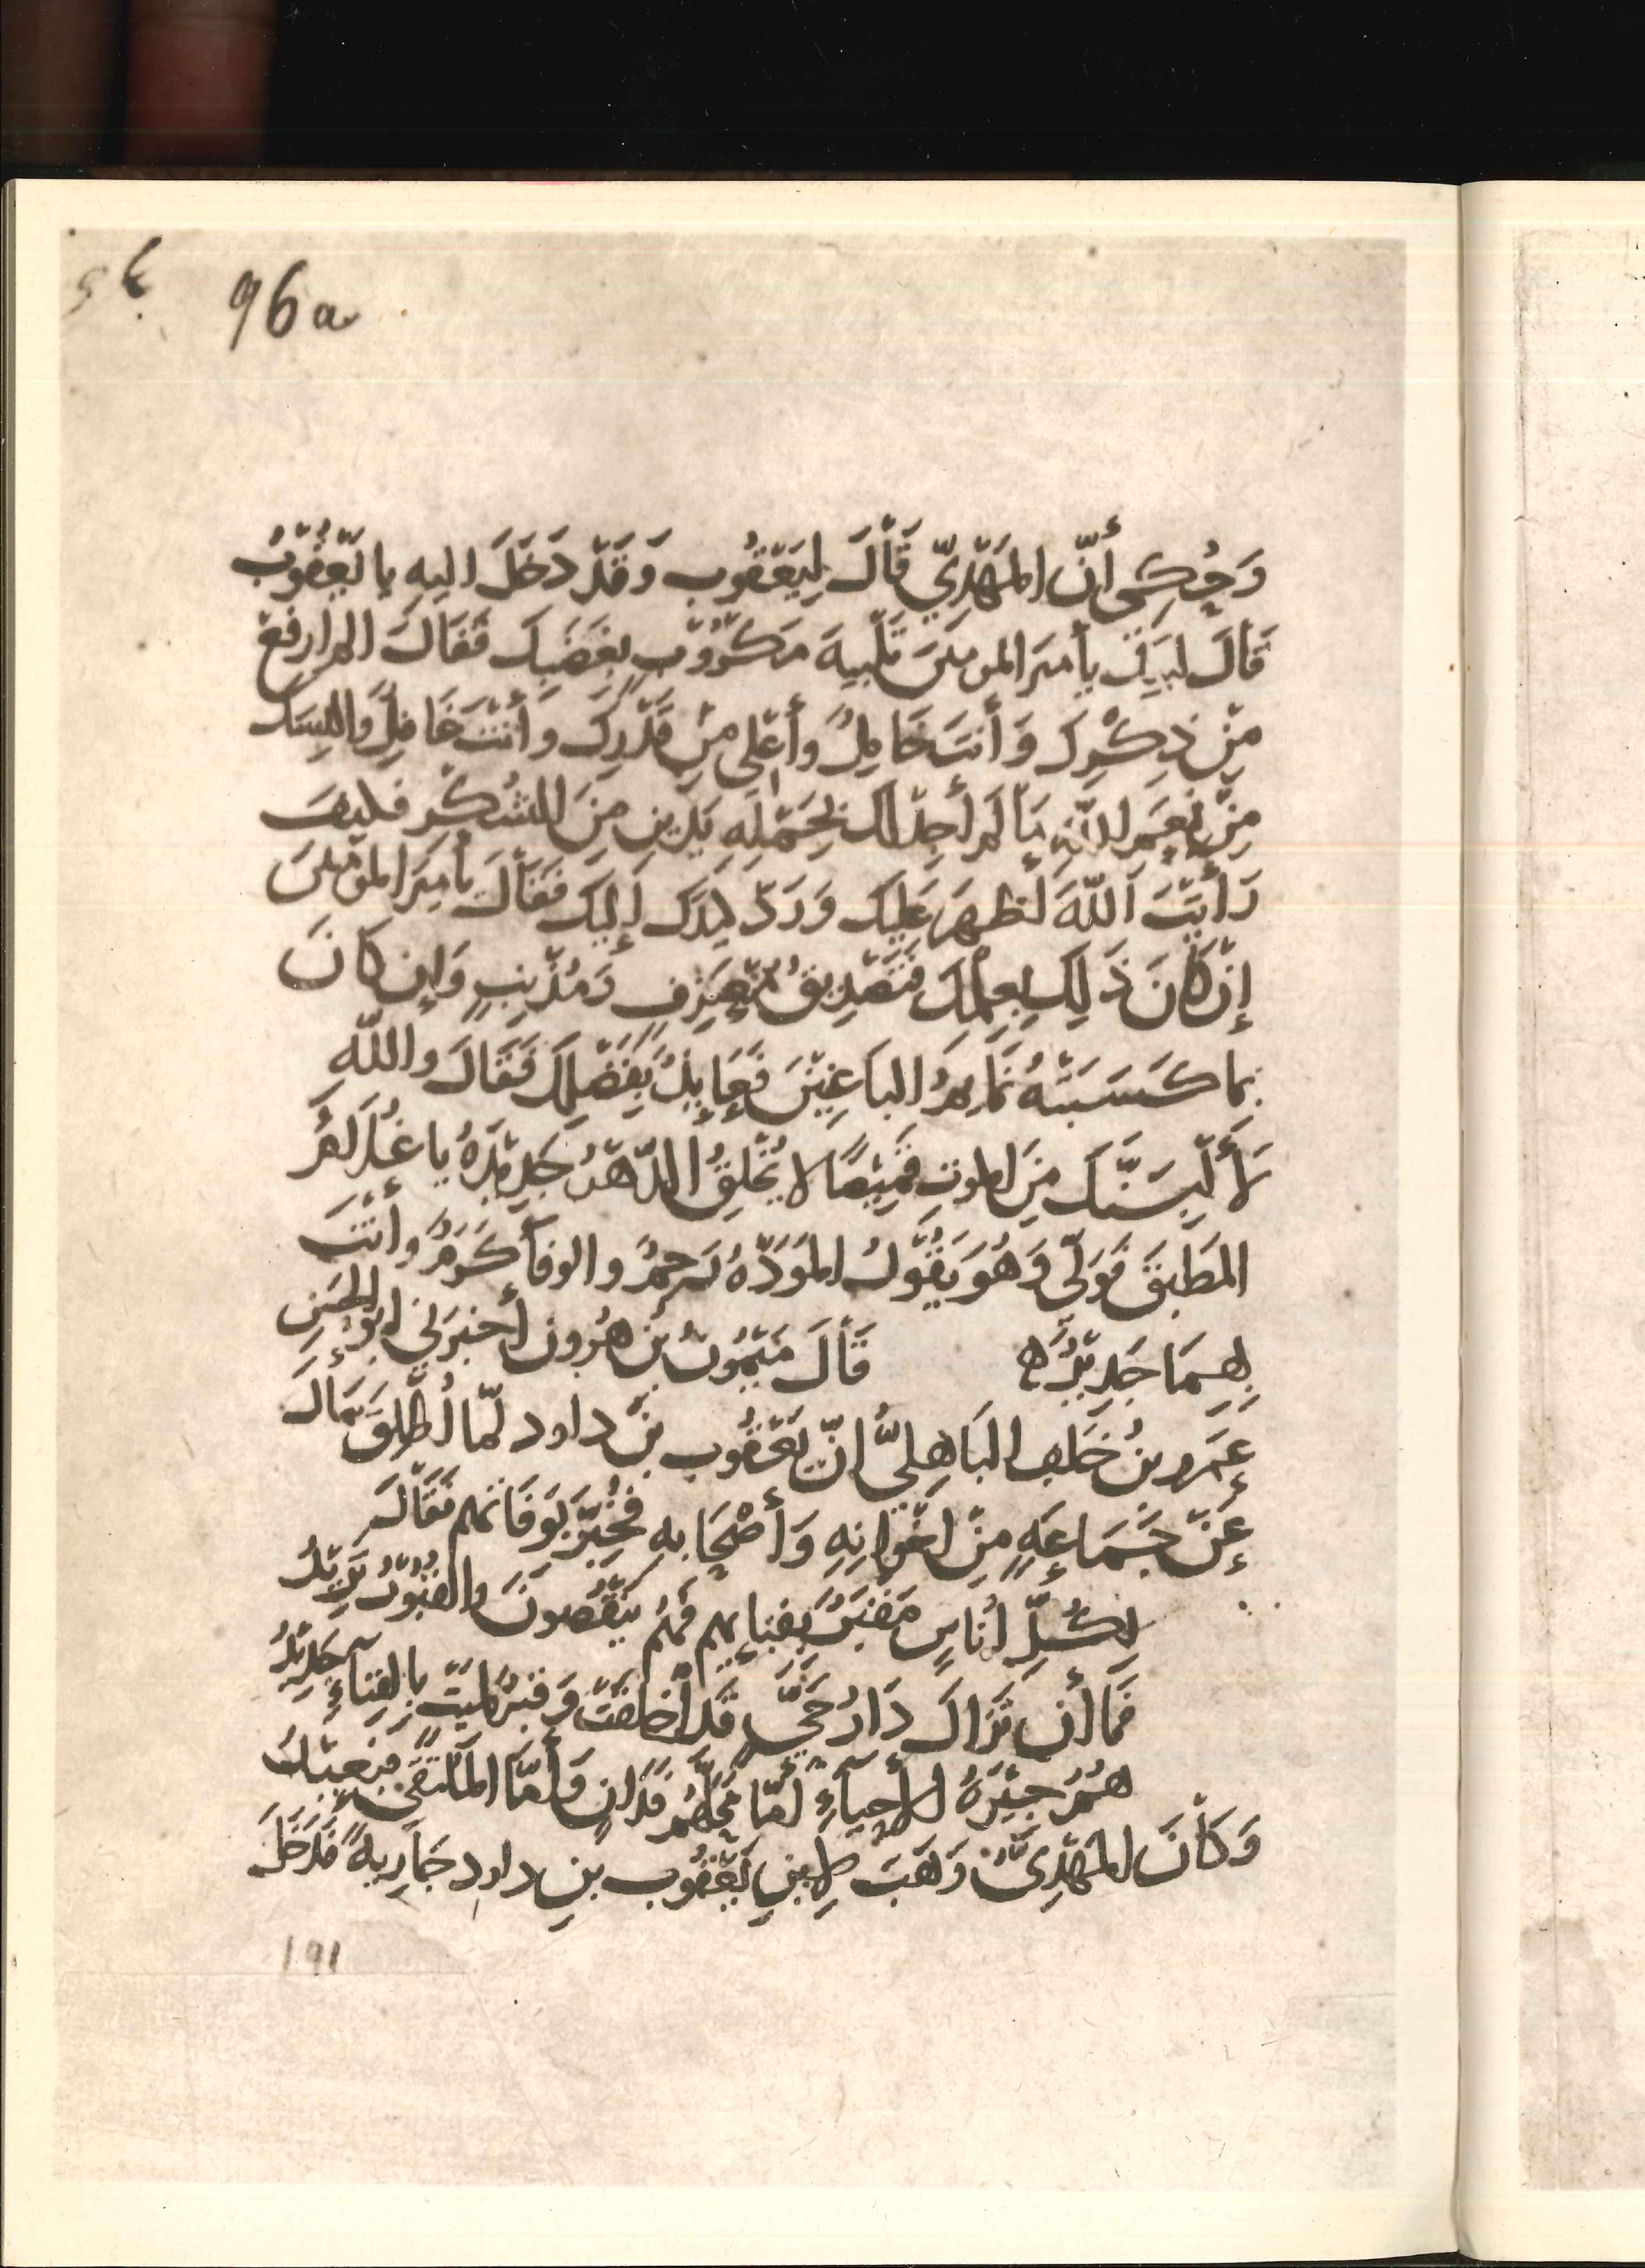 96a
وَحُكِي أَنّ المَهْدِيّ قَالَ لِيَعْقُوب وَقَدْ دَخَلَ اليه يا يَعْقُوبُ
قَالَ لبيك يأميرَ المومنينَ تَلْبِيةَ مَكْرُوبٍ بِغَضَبِكَ فَقَالَ الم ارفع
مِنْ ذِكْرِكَ وَأَنتَ خَامِلٌ وأُعْلي مِنْ قَدْرِكَ وأَنْتَ خَافِلٌ والبسك
مِنْ نِعَمِ اللّهِ مَا لَم أَجِدْ لك بِحَمْلِهِ يَدَينِ مِنَ الشُكْرِ فكيف
رَأَيْتَ اَللّهَ أَظهَرَ عَلَيك وَرَدَّ كيدَك إِلَيك فَقَالَ يأَمِيرَ المؤمنينَ
إِنْ كَانَ ذَلِكَ بِعِلْمِكَ فَتَصْدِيقُ مُعْتَرِفٍ وَمُذْنِبٍ وَإِن كَانَ
بما كَسَبَتْهُ نَمَايِمُ الباغِيْنَ فَعَايِذٌ بِفَضْلِكَ فَقَالَ واللّهِ
لَأُلْبِسَنَّكَ مِنَ الموتِ قَمِيْصًا لا يُخْلِقُ الدّهْرُ جَدِيْدَهُ يا غُلَامُ
المَطْبِقَ فَوَلّى وَهُوَ يَقُولُ المَوَدّهُ رحمٌ والوفأ كَرَمٌ وَأنْتَ
بِهِمَا جَدِيْرٌ ه قَالَ مَيْمُونُ بْنُ هرُون أَخبَرَنِي ابو الحَسَنِ
عَمرو بنُ خَلَفٍ البَاهِليُّ انّ يَعْقُوب بْنَ داود لمّا أُطْلِقَ سَأَلَ
عَنْ جَمَاعَةٍ مِنْ اخْوانِهِ وَأَصْحَابِهِ فَخُبِّرَ بِوَفَاتهم فَقَالَ
لِكُلِّ أُنَاسٍ مَقْبَرٌ بِفِنَايِهِم فَهُمْ يَنْقُصونَ والقُبُوْرُ تَزِيْدُ
فَمَا أَن تَزَالَ دَارُ حَيٍّ قَد أَخلَقَتْ وَقَبرٌ لميتٍ بِالفِنَاءِ جَدِيْدُ
هُمُ جِيْرَةُ الأَحيَاءِ أَمّا مَحَلُّهُم فَدَانٍ وَأَمّا المُلْتَقَى فبَعِيْدُ
وَكَانَ المَهْدِيُّ وَهَبَ لِابنِ يَعْقُوب بنِ داود جَارِيةً فَدَخَلَ
191